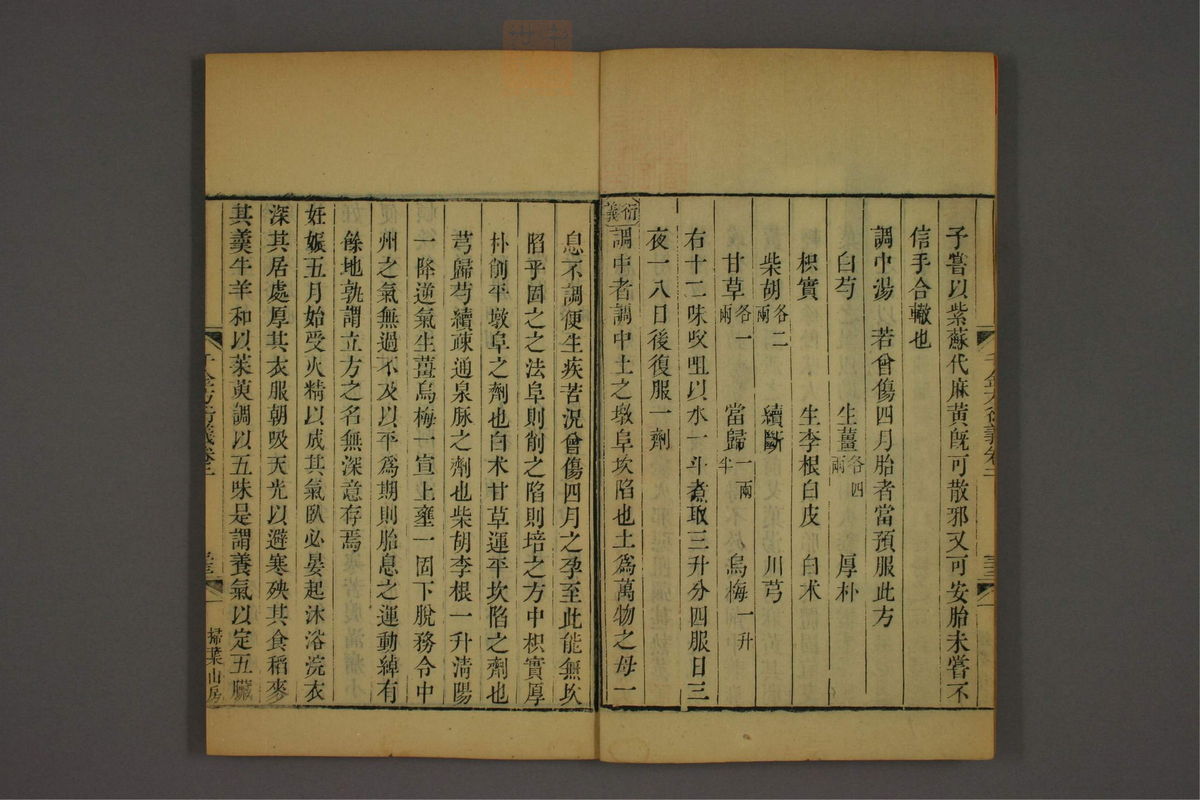 子嘗以紫蘇代麻黄旣可散邪又可安胎未嘗不
信手合轍也
調中湯 若曾傷四月胎者當預服此方
白芍 生薑各四兩 厚朴
枳實 生李根白皮 白术
柴胡各二兩 續斷 川芎
甘草各一兩 當歸一兩半 烏梅一升
右十二味㕮咀以水一斗煮取三升分四服日三
夜一八日後復服一劑
衍義 調中者調中土之墩阜坎陷也土爲萬物之母一
息不調便生疾苦況曾傷四月之孕至此能無坎
陷乎固之之法阜則削之陷則培之方中枳實厚
朴削平墩阜之劑也白术甘草運平坎陷之劑也
芎歸芍續疎通泉脉之劑也柴胡李根一升清陽
一降逆氣生薑烏梅一宣上壅一固下脫務令中
州之氣無過不及以平爲期則胎息之運動綽有
餘地孰謂立方之名無深意存焉
妊娠五月始受火精以成其氣臥必晏起沐浴浣衣
深其居處厚其衣服朝吸天光以避寒殃其食稻麥
其羹牛羊和以茱萸調以五味是謂養氣以定五臟
掃葉山房